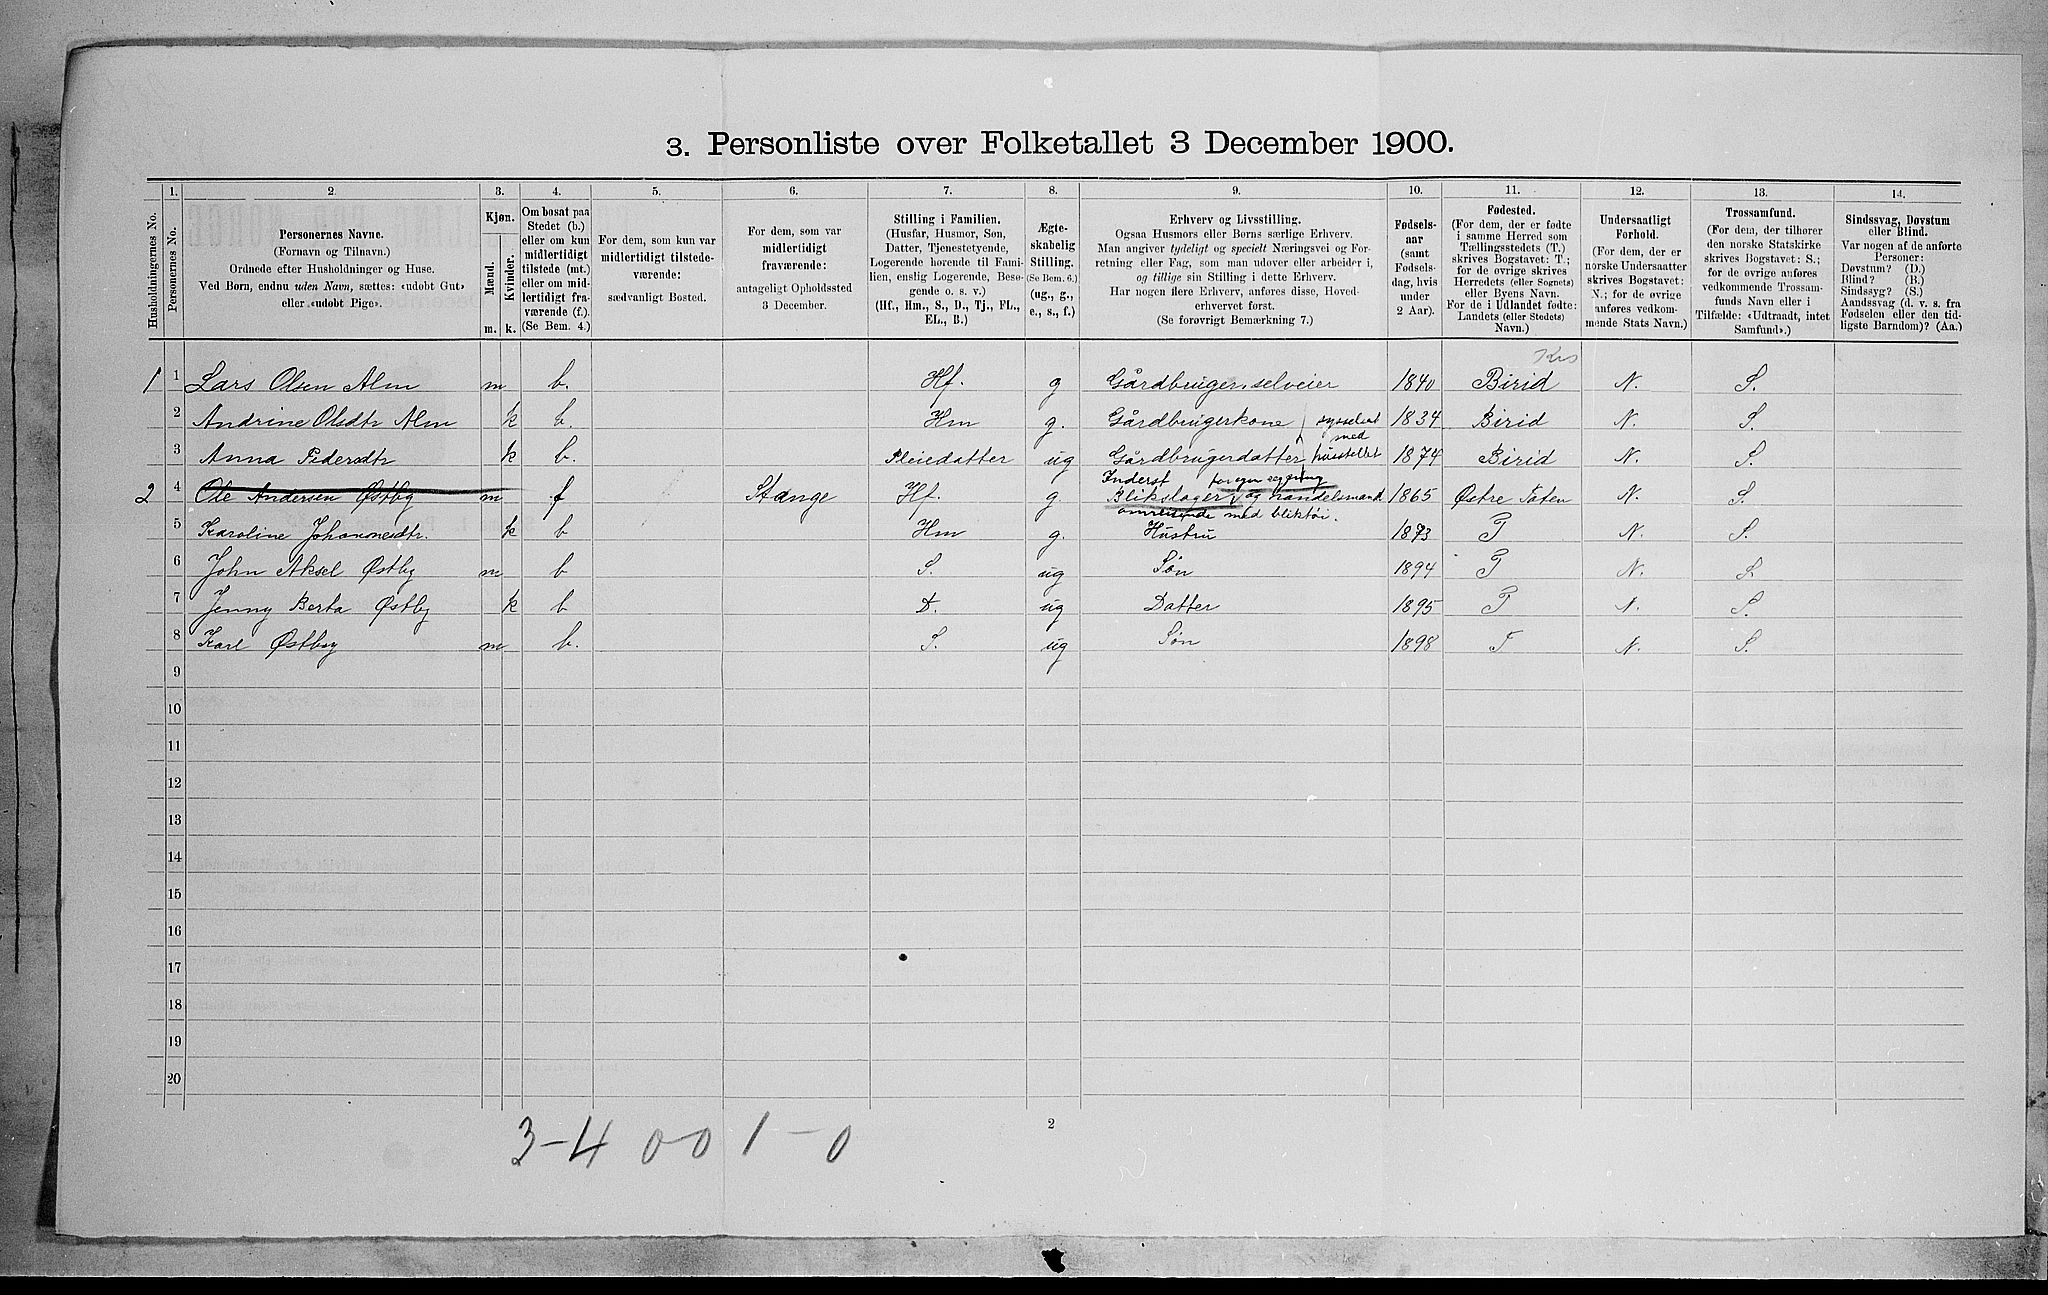 3. Personliste over Folketallet 3 December 1900.
1. 2. 3. 4. 5. 6. 7. 8. 9. 10. 11. 12. 13. 14.
Husholdningernes No.
Personernes No.
Personernes Navne.
(Fornavn og Tilnavn.)
Ordnede efter Husholdninger og Huse.
Ved Børn, endnu uden Navn, sættes: «udøbt Gut»
eller «udøbt Pige».
Kjøn.
Mænd.
Kvinder.
m. k.
Om bosat paa
Stedet (b.)
eller om kun
midlertidigt
tilstede (mt.)
eller om mid-
lertidigt fra-
værende (f.).
(Se Bem. 4.)
For dem, som kun var
midlertidigt tilstede-
værende:
sædvanligt Bosted.
For dem, som var
midlertidigt
fraværende:
antageligt Opholdssted
3 December.
Stilling i Familien.
(Husfar, Husmor, Søn,
Datter, Tjenestetyende,
Logerende hørende til Fami-
lien, enslig Logerende, Besø-
gende o. s. v.)
(Hf., Hm., S., D., Tj., FL.,
EL., B.)
Ægte-
skabelig
Stilling.
(Se Bem. 6.)
(ug., g.,
e., s., f.)
Erhverv og Livsstilling.
Ogsaa Husmors eller Børns særlige Erhverv.
Man angiver tydeligt og specielt Næringsvei og For-
retning eller Fag, som man udøver eller arbeider i,
og tillige sin Stilling i dette Erhverv.
Har nogen flere Erhverv, anføres disse, Hoved-
erhvervet først.
(Se forøvrigt Bemærkning 7.)
Fødsels-
aar
(samt
Fødsels-
dag, hvis
under
2 Aar).
Fødested.
(For dem, der er fødte
i samme Herred som
Tællingsstedets (T.)
skrives Bogstavet: T.;
for de øvrige skrives
Herredets (eller Sognets)
eller Byens Navn.
For de i Udlandet fødte:
Landets (eller Stedets)
Navn.)
Undersaatligt
Forhold.
(For dem, der er
norske Undersaatter
skrives Bogstavet:
N.; for de øvrige
anføres vedkom-
mende Stats Navn.)
Trossamfund.
(For dem, der tilhører
den norske Statskirke
skrives Bogstavet: S.;
for de øvrige anføres
vedkommende Trossam-
funds Navn eller i
Tilfælde: «Udtraadt, intet
Samfund».)
Sindssvag, Døvstum
eller Blind.
Var nogen af de anførte
Personer:
Døvstum? (D.)
Blind? (B.)
Sindssyg? (S.)
Aandssvag (d. v. s. fra
Fødselen eller den tid-
ligste Barndom)? (Aa.)
Krs
1 1 Lars Olsen Alm m b. Hf. g Gårdbruger, selveier 1840 Birid N. S.
2 Andrine Olsdtr Alm k b. Hm g. Gårdbrugerkone sysselsat 1834 Birid N. S.
med
3 Anna Pedersdtr k b. Pleiedatter ug Gårdbrugerdatter husstellet 1874 Birid N. S.
Inderst for egen regning
2 4 Ole Andersen Østby m f Stange Hf. g Blikslager og handelsmand 1865 Østre Toten N. S.
omreisende med bliktøi.
5 Karoline Johannesdtr. k b Hm g. Hustru 1873 T N. S.
6 John Aksel Østby m b S. ug Søn 1894 T N. S.
7 Jenny Berta Østby k b D. ug Datter 1895 T N. S.
8 Karl Østby m b. S. ug Søn 1898 T N. S.
9
10
11
12
13
14
15
16
17
18
19
20
2
3-4 0-0 1-0